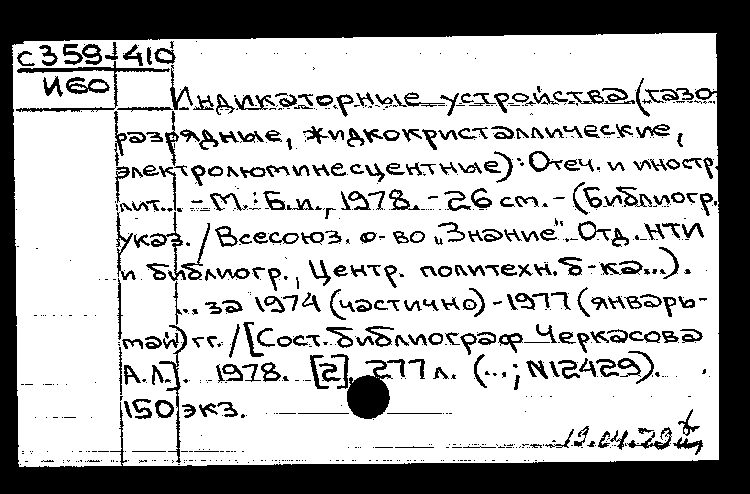 с359-410
И60
Индикаторные устройства (газо-
разрядные, жидкокристаллические,
электролюминесцентные): Отеч. и иностр.
лит... - М.: Б.и., 1978. - 26 см. - (Библиогр.
указ. / Всесоюз. о-во „Знание". Отд. НТИ
и библиогр., Центр. политехн. б-ка...).
... за 1974 (частично) - 1977 (январь-
май) гг. / [Сост. библиограф Черкасова
А.Л.]. 1978. [2], 277 л. (...; N12429).
150 экз.
19.04.79